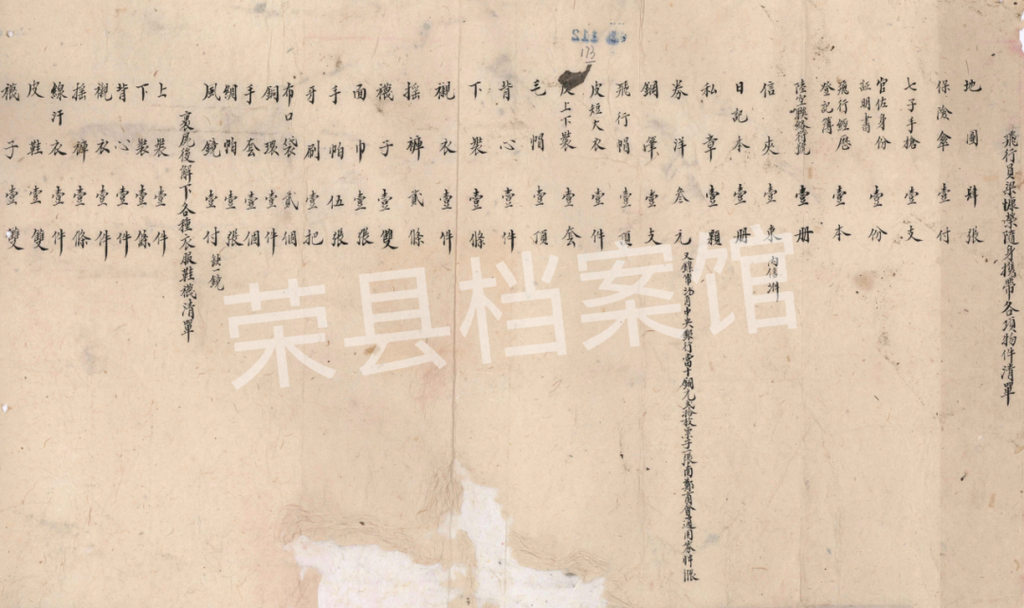 飛行員梁㯋榮隨身攜帶各項物件清單
地圖肆張
保險傘壹付
七子手搶壹支
官佐身份証明書壹份
飛行經歷登記簿壹本
陸空聯絡符號壹册
信夾壹束 內信辦
日記本壹册
私章壹顆
券洋叁元
鋼筆壹支
飛行帽壹頂
皮短大衣壹件
皮上下裝壹套
毛帽壹頂
背心壹件
下裝壹條
襯衣壹件
搖褲貳條
襪子壹雙
面巾壹張
手帕伍張
牙刷壹把
布口袋貳個
銅環壹個
手套壹個
綢帕壹張
風鏡壹付 缺一鏡
裹屍後解下各種衣服鞋襪清單
上裝壹件
下裝壹條
背心壹件
襯衣壹件
搖褲壹條
線汗衣壹件
皮鞋壹雙
襪子壹雙
112
123
荣县档案馆